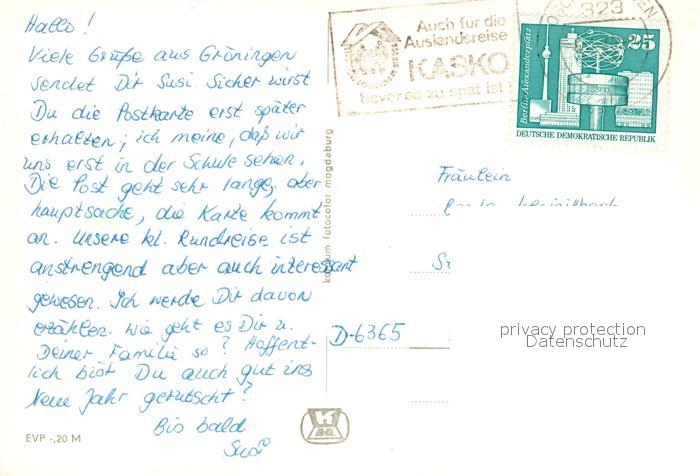 Hallo!
Viele Grüße aus Gröningen
sendet Dir Susi. Sicher wirst
Du die Postkarte erst später
erhalten; ich meine, daß wir
uns erst in der Schule sehen.
Die Post geht sehr lange, aber
hauptsache, die Karte kommt
an. Unsere kl. Rundreise ist
anstrengend aber auch interessant
gewesen. Ich werde Dir davon
erzählen. Wie geht es Dir u.
Deiner Familie so? Hoffent-
lich bist Du auch gut ins
Neue Jahr gerutscht?
Bis bald
Susi
EVP -,20 M
fotocolor magdeburg
Auch für die
Auslandsreise
KASKO
bevor es zu spät ist
323
25
Berlin-Alexanderplatz
DEUTSCHE DEMOKRATISCHE REPUBLIK
Fräulein
D-6365
privacy protection
Datenschutz